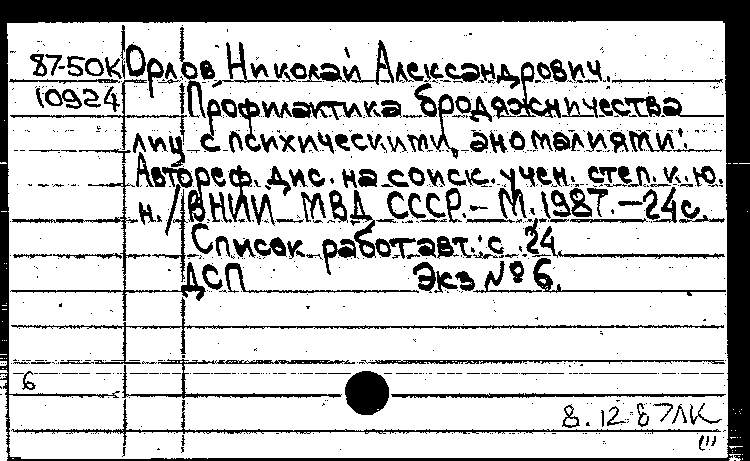 87-50К Орлов Николай Александрович.
10924 Профилактика бродяжничества
лиц с психическими, аномалиями:
Автореф. дис. на соиск. учен. степ. к. ю.
н. / ВНИИ МВД СССР.- М, 1987.-24с.
Список работ авт.: с .24.
ДСП Экз № 6.
6
8.12 87ЛК